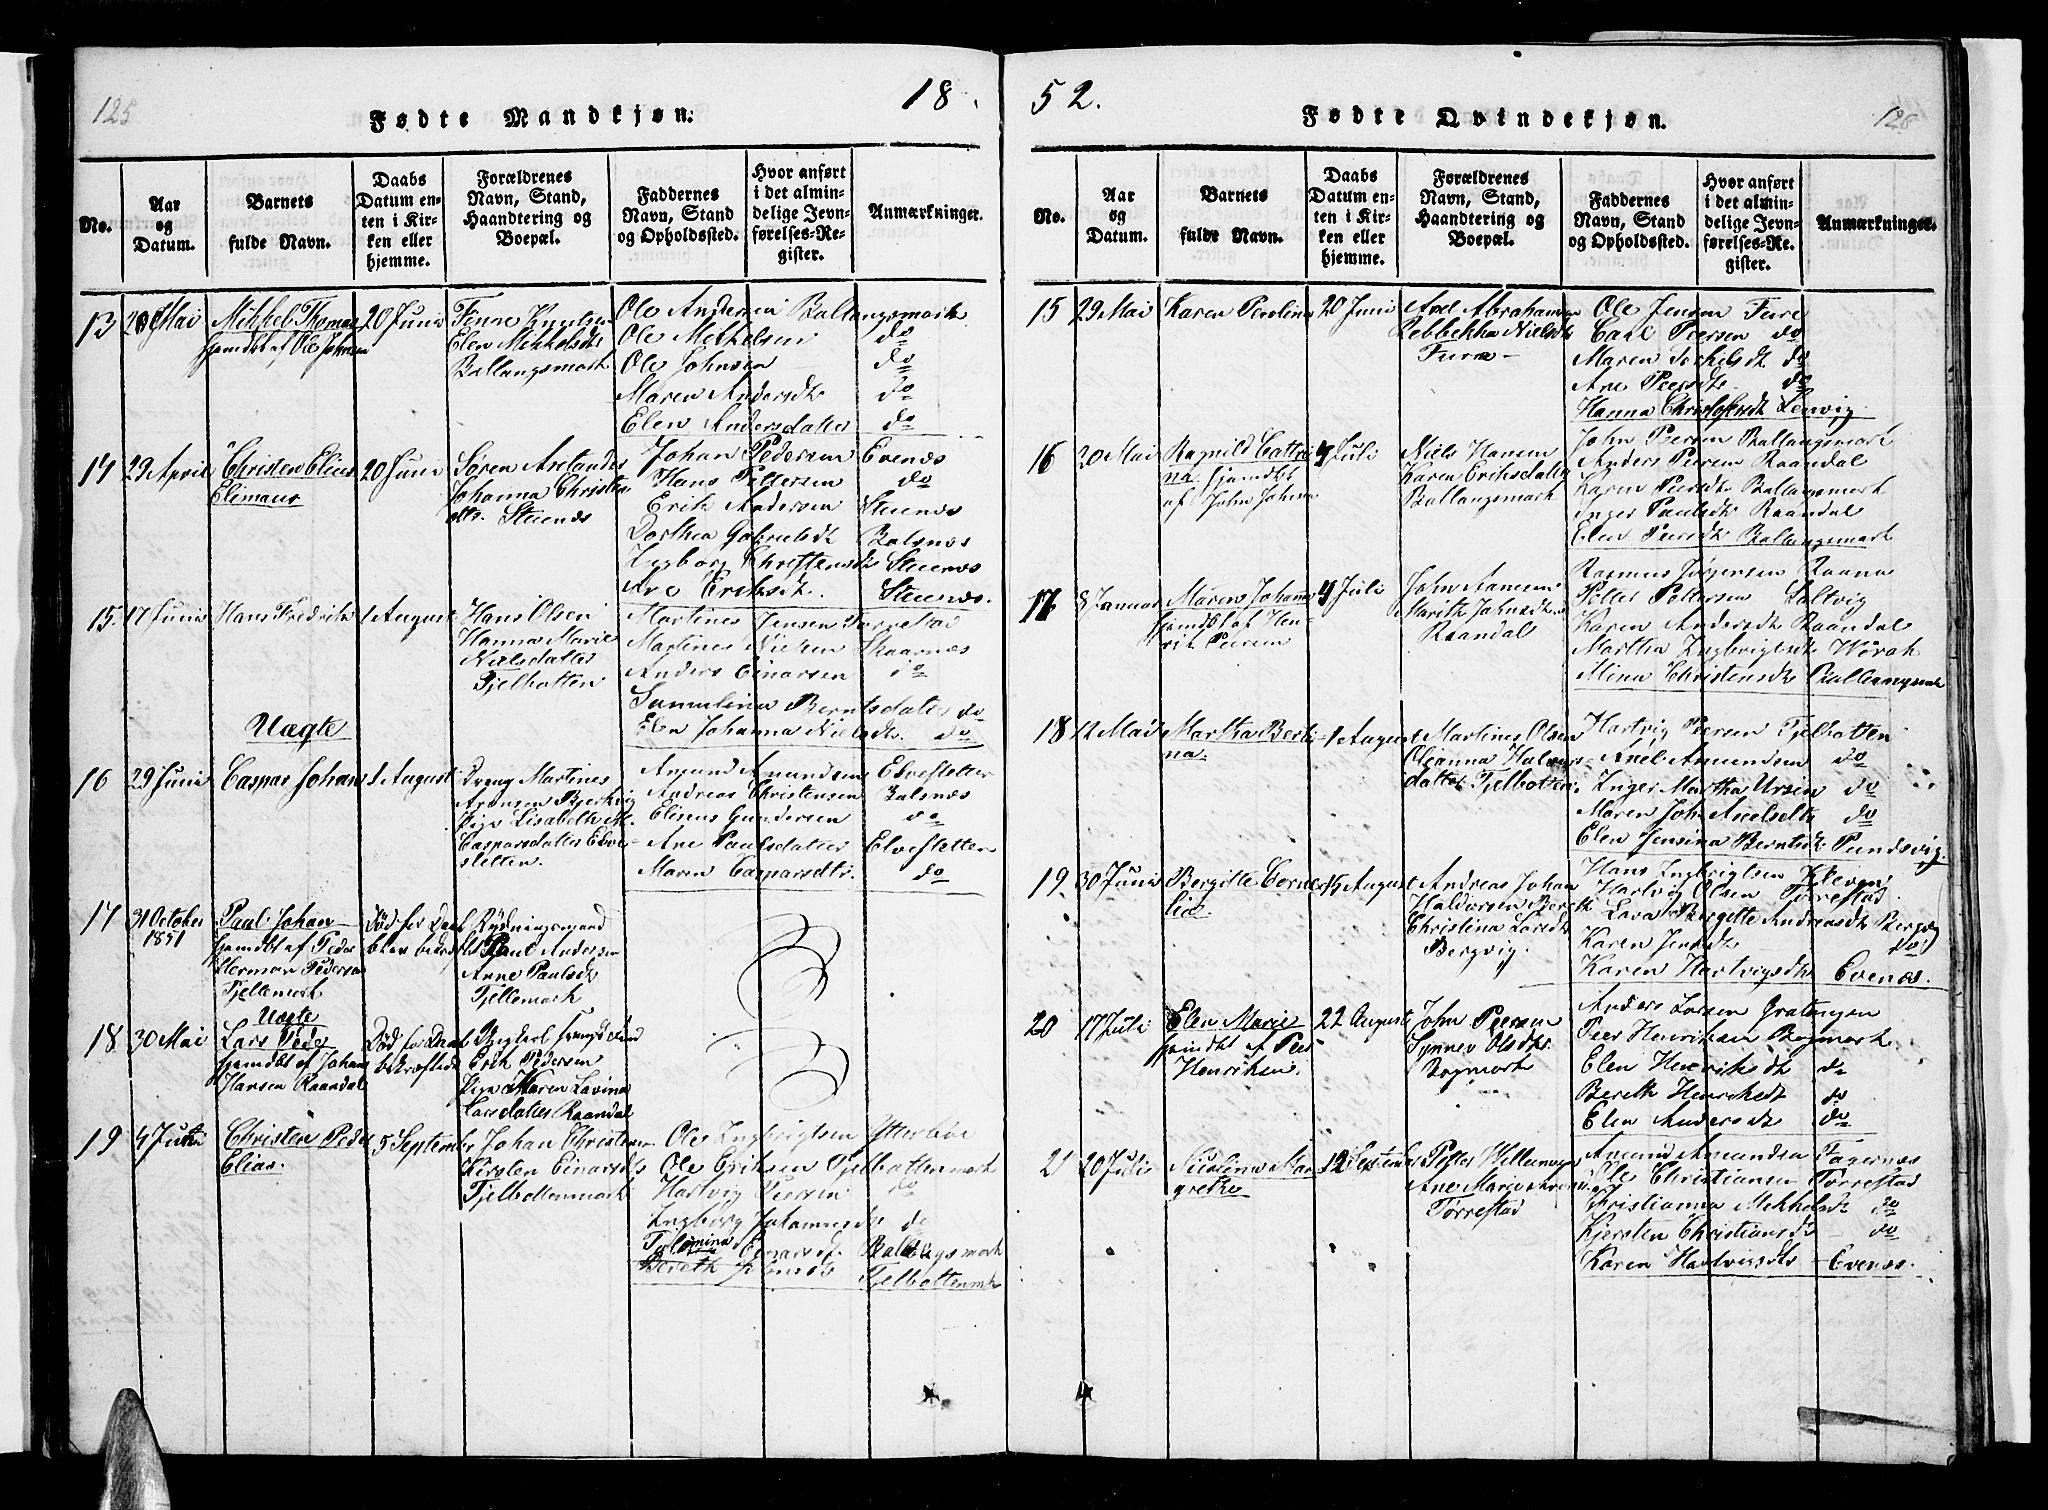 125
18
Fødte Mandkjøn.
No.
Aar
og
Datum.
Barnets
fulde Navn.
Daabs
Datum en-
ten i Kir-
ken eller
hjemme.
Forældrenes
Navn, Stand,
Haandtering og
Boepæl.
Faddernes
Navn, Stand
og Opholdssted.
Hvor anført
i det almin-
delige Jevn-
førelses-Re-
gister.
Anmærkninger.
13
Mai
Mikkel Thomas
hjemdbt af Ole Johnsen
20 Juni
Elen Mikkelsdtr
Ballangsmark
Ole Andersen Ballangsmark
Ole Mekkelsen do
Ole Johnsen do
Maren Andersdtr do
Elen Andersdatter do
14
29 April
Christen Elius
Elimaus
20 Juni
Søren
Johanna Christens
dtr. Stuenæs
Johan Pedersen Evenæs
Hans Pettersen do
Erik Andersen Stuenæs
Dorthea Gabrielsdt Balsnæs
Ingborg Christensdtr Stuenæs
Ane Eriksdt. Stuenæs.
15.
17 Junii
Hans Fredrik
1 August
Hans Olsen
Hanna Marie
Nielsdatter
Fjelbotten
Martines Jensen
Martines Nielsen Skaarnæs
Anders Einarsen do
Samulina Berntsdatter do
Elen Johanna Nielsdt. do
Uægte
16
29 Junii
Caspar Johan
1 August
Dreng Martines
Aronsen Bjerkvig
Pige Lisabeth
Caspersdatter Elve-
sletten.
Amund Amundsen Elvesletten
Andreas Christensen Balsnæs
Eliseus Gundersen do
Ane Paulsdatter Elvesletten
Maren Casparsdtr. do
17
31 October
1851
Paul Johan
hjemdbt af Peder
Herman Pedersen
Fjellemark
Død før Daab
blev bekræft
Rydningsmand
Paul Andersen
Anne Paulsdt
Fjellemark
Uægte
18
30 Mai
Lars Peder
hjemdbt af Johan
Hansen Raandal
Død før Daab
bekræftede
Erik Pedersen
Pige Maren Lavina
Larsdatter Raandal
19
4 Juli
Christen Peder
Elias.
5 September
Johan Christensen
Kirsten Einarsdt
Fjelbottenmark
Ole Ingbrigtsen
Ole Eriksen Fjelbottenmark
Hartvig Peersen do
Ingborg Johannesdt do
Einarsd. Ballangsmark
Bereth Fjelbottenmark
52.
126
Fødte Qvindekjøn.
No.
Aar
og
Datum.
Barnets
fulde Navn.
Daabs
Datum en-
ten i Kir-
ken eller
hjemme.
Forældrenes
Navn, Stand,
Haandtering og
Boepæl.
Faddernes
Navn, Stand
og Opholdssted.
Hvor anført
i det almin-
delige Jevn-
førelses-Re-
gister.
Anmærkninger.
15
29 Mai
Karen Perolina
20 Juni
Axel Abrahamsen
Rebbekka Nielsdt
Furæ
Ole Jensen Furæ
Carl Peersen do
Maren Torkelsdt do
Ane Peersdt. do
Hanna Christofersdt Lenvig
16
20 Mai
Ragnild Cattri-
na. hjemdbt
af John Johnsen
4 Juli
Niels Hansen
Karen Eriksdatter
Ballangsmark
John Peersen Ballangsmark
Anders Peersen Raandal
Karen Peersdt Ballangsmark
Inger Paulsdt Raandal
Elen Peersdt Ballangsmark
17
8 Januar
Maren Johanna
hjemdbt af Hen-
rik Peersen
4 Juli
John Aansen
Marith Johnsdt
Raandal
Rasmus Jørgensen Raana
Petter Pettersen Saltvig
Karen Andersdt Raandal
Martha Ingbrigtsdt
Mina Christensdt Ballangsmark
18
12 Mai
Martha Berti-
na.
1 August
Martines Olsen
Oleanna Halvors-
datter Fjelbotten.
Hartvig Peersen Fjelbotten
Axel Amundsen do
Inger Martha Ursin do
Maren John Axelsdtr do
Elen Jensina Berntsdt Pundsvig.
19.
30 Junii
Bergitte Corne-
lia.
15 August
Andreas Johan
Haldorsen Bereth
Christina Larsdt
Bergvig.
Hans Ingbrigtsen Kleven
Hartvig Olsen Tørrestad
Lava Bergitte Andreasdt Bergvig
Karen Jensdt do
Karen Hartvigsdt Evenæs.
20
17 Juli
Elen Marie
hjemdbt af Peer
Henriksen.
22 August
John Peersen
Synnev Olsdtr.
Bogmark
Anders Larsen Gratangen
Peer Henriksen Bogmark
Elen Henriksdt do
Bereth Henriksdt do
Elen Andersdt do
21
20 Juli
Nicolina Mar-
grethe
12 September
Petter Willumsen
Ane Marie
Tørrestad
Amund Amundsen Fagernæs
Ole Christiansen Tørrestad
Christianna Mikkelsdt do
Kjersten Christiansdt do
Karen Hartvigsdtr Evenæs.